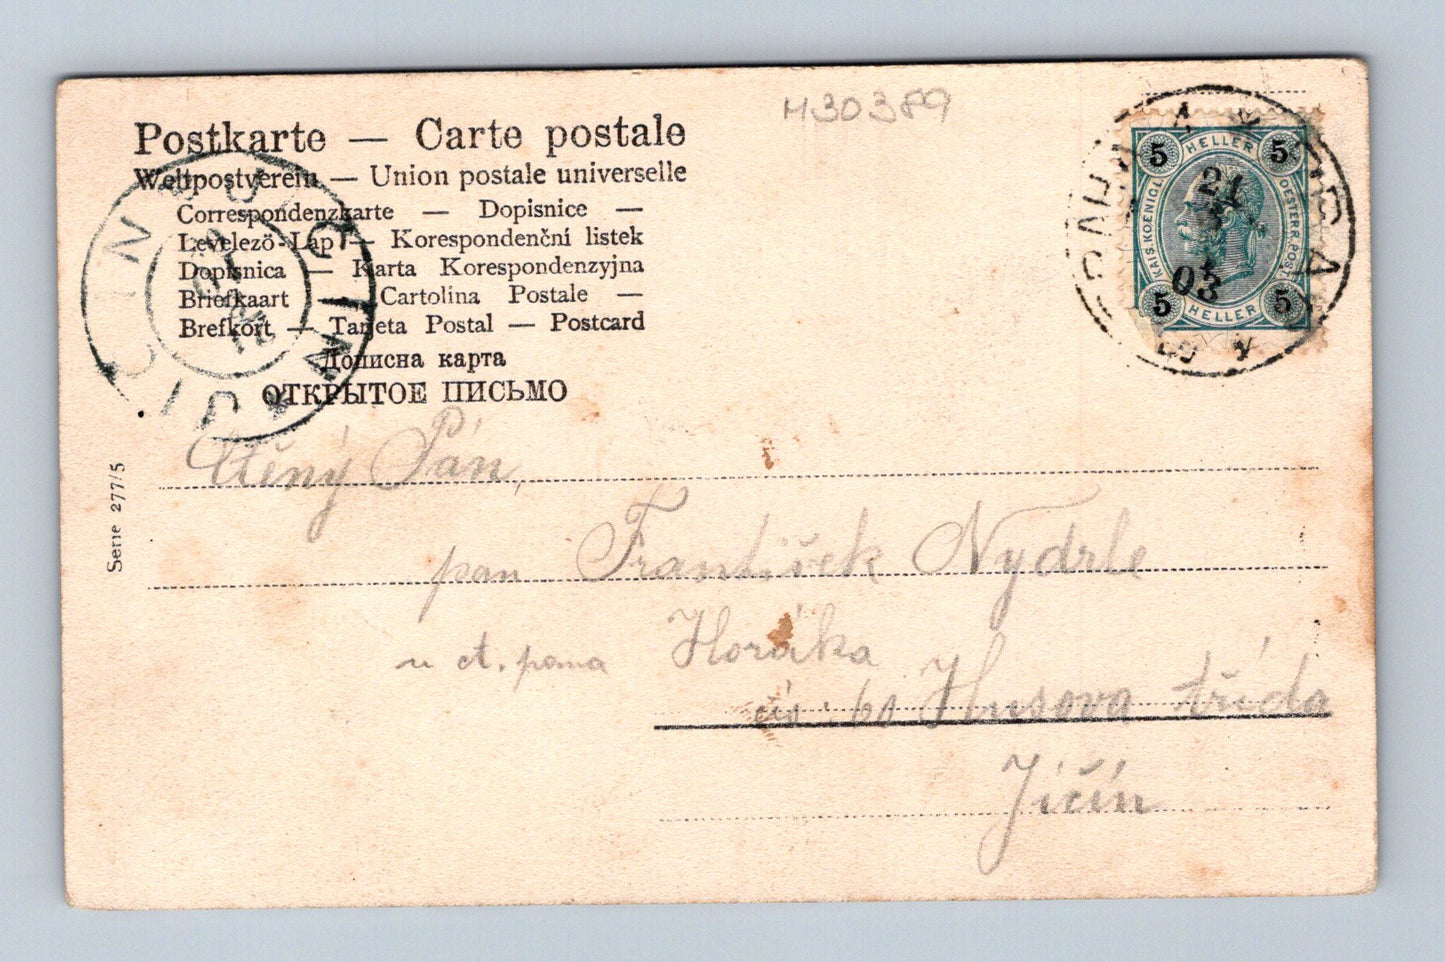 H30389
Postkarte — Carte postale
Weltpostverein — Union postale universelle
Correspondenzkarte — Dopisnice —
Levelező-Lap — Korespondenční listek
Dopisnica — Karta Korespondenzyjna
Briefkaart — Cartolina Postale —
Brefkort — Tarjeta Postal — Postcard
Дописна карта
ОТКРЫТОЕ ПИСЬМО
5 HELLER 5
KAIS. KOENIGL. OESTERR. POST
5 HELLER 5
21
5
03
JIČÍN
Serie 277/5
Ctěný Pán,
pan František Nydrle
u ct. pana Horáka
čís. 60 Husova třída
Jičín